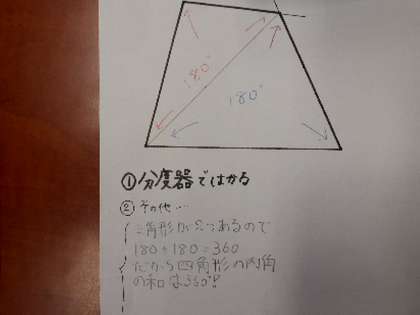 180°
180°
①分度器ではかる
②その他…
三角形が2つあるので
180+180=360
だから四角形の内角
の和は360°!